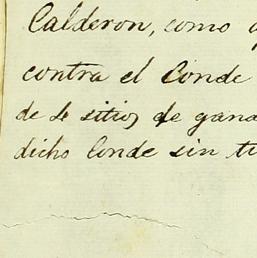 Calderon, como
contra el Conde
de 4 sitios de gana
dicho Conde sin ti